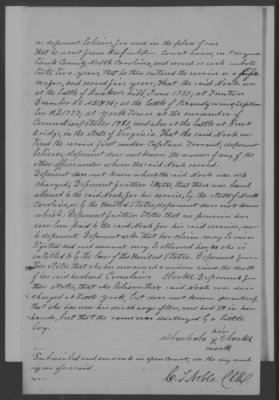 as deponent believes for and in the place of one
That he went from Fairfield Court house, in
County, North Carolina, and served as such substi
tute two years, that he then entered the service as a fife
major, and served five years, That the said Noah was
at the battle of Bunkers hill June 1775; at Trenton
December 1776; at the battle of Brandywine, Septem
ber 1777; at York Town at the surrender of
Cornwallis, October 1781, and also at the battle at Great
Bridge, in the state of Virginia. That the said Noah en
tered the service first under Captain as deponent
believes, deponent does not know the names of any of the
other officers under whom the said Noah served.
Deponent does not know where the said Noah was dis
charged, Deponent further states, that there was land
allowed to the said Noah for his service, by the state of North
Carolina, or by the United States, deponent does not know
which. Deponent further states that no pension has
ever been paid to the said Noah for his said service, nor
to deponent. Deponent asks that her claim may be inves
tigated and such amount may be allowed her, as she is
entitled to by the laws of the United States. Deponent fur
ther states, that she has remained a widow since the death
of her said husband Cornelius Deponent fur
ther states, that she believes that said Noah was dis
charged at Little York, but does not know precisely
that she has seen his discharge often, and had it in her
hands, but that the same was destroyed by a little
boy.
her
X
mark
Subscribed and sworn to in open court, on the day and
year aforesaid.
C. S. Noble Clk